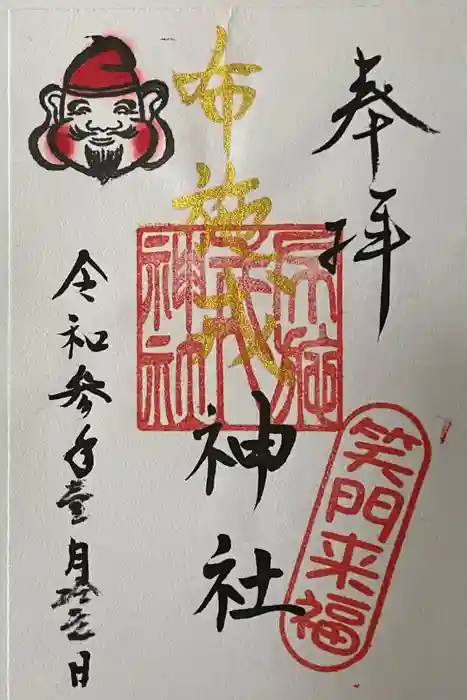 奉拝
布施戎
神社
布施戎神社
笑門来福
令和参年壹月日